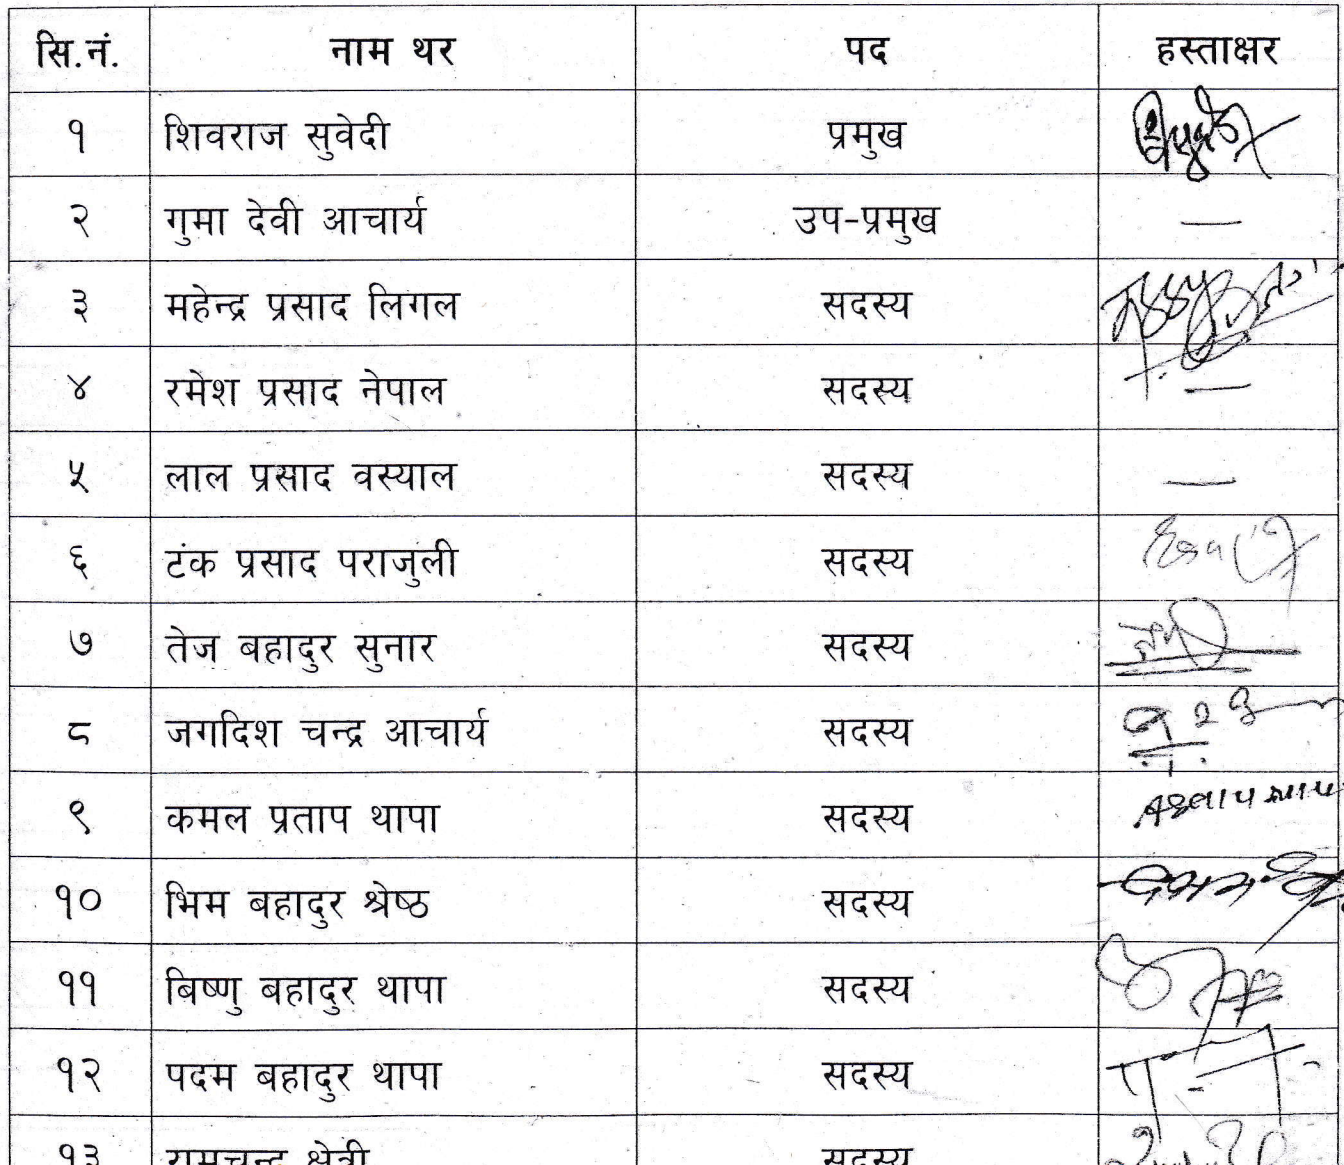 सि.नं. नाम थर पद हस्ताक्षर
१ शिवराज सुवेदी प्रमुख
२ गुमा देवी आचार्य उप-प्रमुख —
३ महेन्द्र प्रसाद लिगल सदस्य
४ रमेश प्रसाद नेपाल सदस्य —
५ लाल प्रसाद वस्याल सदस्य —
६ टंक प्रसाद पराजुली सदस्य
७ तेज बहादुर सुनार सदस्य
८ जगदिश चन्द्र आचार्य सदस्य
९ कमल प्रताप थापा सदस्य
१० भिम बहादुर श्रेष्ठ सदस्य
११ बिष्णु बहादुर थापा सदस्य
१२ पदम बहादुर थापा सदस्य
१३ रामचन्द्र क्षेत्री सदस्य